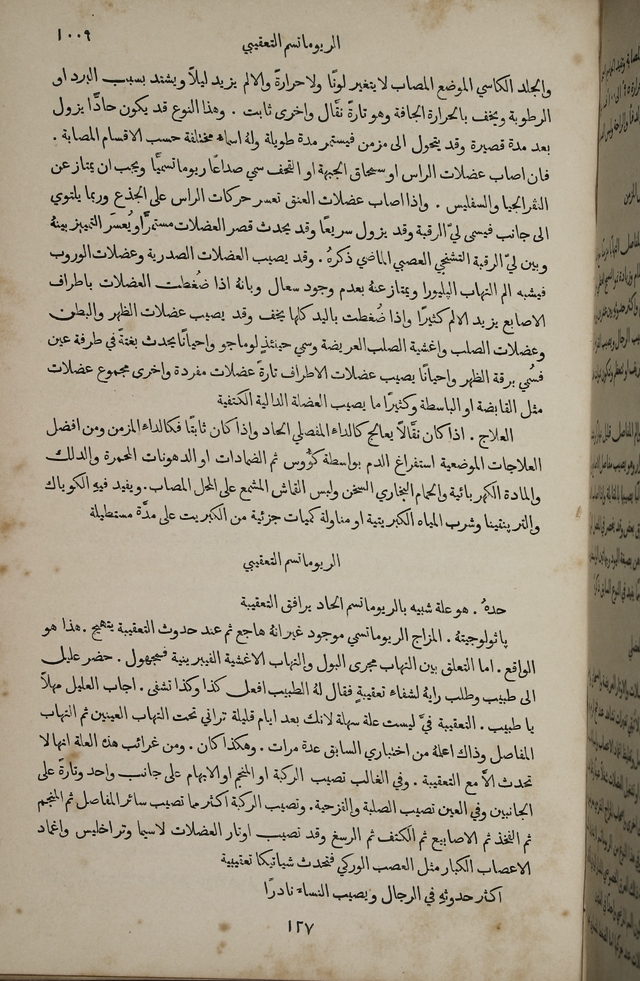 الريوماتسم التعقيبي
١٠٠٩
والجلد الكاسي الموضع المصاب لا يتغير لونًا ولا حرارةً والالم يزيد ليلاً ويشتد بسبب البرد او
الرطوبة ويخف بالحرارة الجافة وهو تارةً نقَّال واخرى ثابت . وهذا النوع قد يكون حادًّا يزول
بعد مدة قصيرة وقد يتحول الى مزمن فيستمر مدة طويلة ولهُ اسماء مختلفة حسب الاقسام المصابة .
فان اصاب عضلات الراس او سمحاق الجبهة او القحف سمي صداعًا ريوماتسميًّا ويجب ان يمتاز عن
النفرالجيا والسفليس . واذا اصاب عضلات العنق تعسر حركات الراس على الجذع وربما يلتوي
الى جانب فيسمى ليّ الرقبة وقد يزول سريعًا وقد يحدث قصر العضلات مستمرًّا ويُعسَر التمييز بينهُ
وبين ليّ الرقبة التشنجي العصبي الماضي ذكرهُ . وقد يصيب العضلات الصدرية وعضلات الوروب
فيشبه الم التهاب الپليورا ويمتاز عنهُ بعدم وجود سعال وبانهُ اذا ضُغطت العضلات باطراف
الاصابع يزيد الالم كثيرًا واذا ضُغطت باليد كلها يخف وقد يصيب عضلات الظهر والبطن
وعضلات الصلب واغشية الصلب العريضة وسمي حينئذٍ لوماجو واحيانًا يحدث بغتةً في طرفة عين
فسُمي برقة الظهر واحيانًا يصيب عضلات الاطراف تارةً عضلات مفردة واخرى مجموع عضلات
مثل القابضة او الباسطة وكثيرًا ما يصيب العضلة الدالية الكتفية
العلاج . اذا كان نقَّالاً يعالج كالداء المفصلي الحاد واذا كان ثابتًا فكالداء المزمن ومن افضل
العلاجات الموضعية استفراغ الدم بواسطة كؤُوس ثم الضمادات او الدهونات المحمرة والدلك
والمادة الكهربائية والحمام البخاري السخن ولبس القماش المشمع على المحل المصاب . ويفيد فيهِ الكوياك
والتربنتينا وشرب المياه الكبريتية او مناولة كميات جزئية من الكبريت على مدَّة مستطيلة
الريوماتسم التعقيبي
حدهُ . هو علة شبيه بالريوماتسم الحاد يرافق التعقيبة
پاثولوجيتهُ . المزاج الريوماتسمي موجود غير انهُ هاجع ثم عند حدوث التعقيبة يتهيج . هذا هو
الواقع . اما التعلق بين التهاب مجرى البول والتهاب الاغشية الفيبرينية فمجهول . حضر عليل
الى طبيب وطلب رايهُ لشفاء تعقيبةٍ فقال لهُ الطبيب افعل كذا وكذا تشفى . اجاب العليل مهلاً
يا طبيب . التعقيبة فيَّ ليست علة سهلة لانك بعد ايام قليلة تراني تحت التهاب العينين ثم التهاب
المفاصل وذاك اعلمهُ من اختباري السابق عدة مرات . وهكذا كان . ومن غرائب هذه العلة انها لا
تحدث الاَّ مع التعقيبة . وفي الغالب تصيب الركبة او المنجم او الابهام على جانب واحد وتارةً على
الجانبين وفي العين تصيب الصلبة والقزحية . وتصيب الركبة اكثر مما تصيب سائر المفاصل ثم المنجم
ثم الفخذ ثم الاصابيع ثم الكتف ثم الرسغ وقد تصيب اوتار العضلات لاسيما وتر اخليس واغماد
الاعصاب الكبار مثل العصب الوركي فتحدث شياتيكا تعقيبية
اكثر حدوثهِ في الرجال ويصيب النساء نادرًا
١٢٧